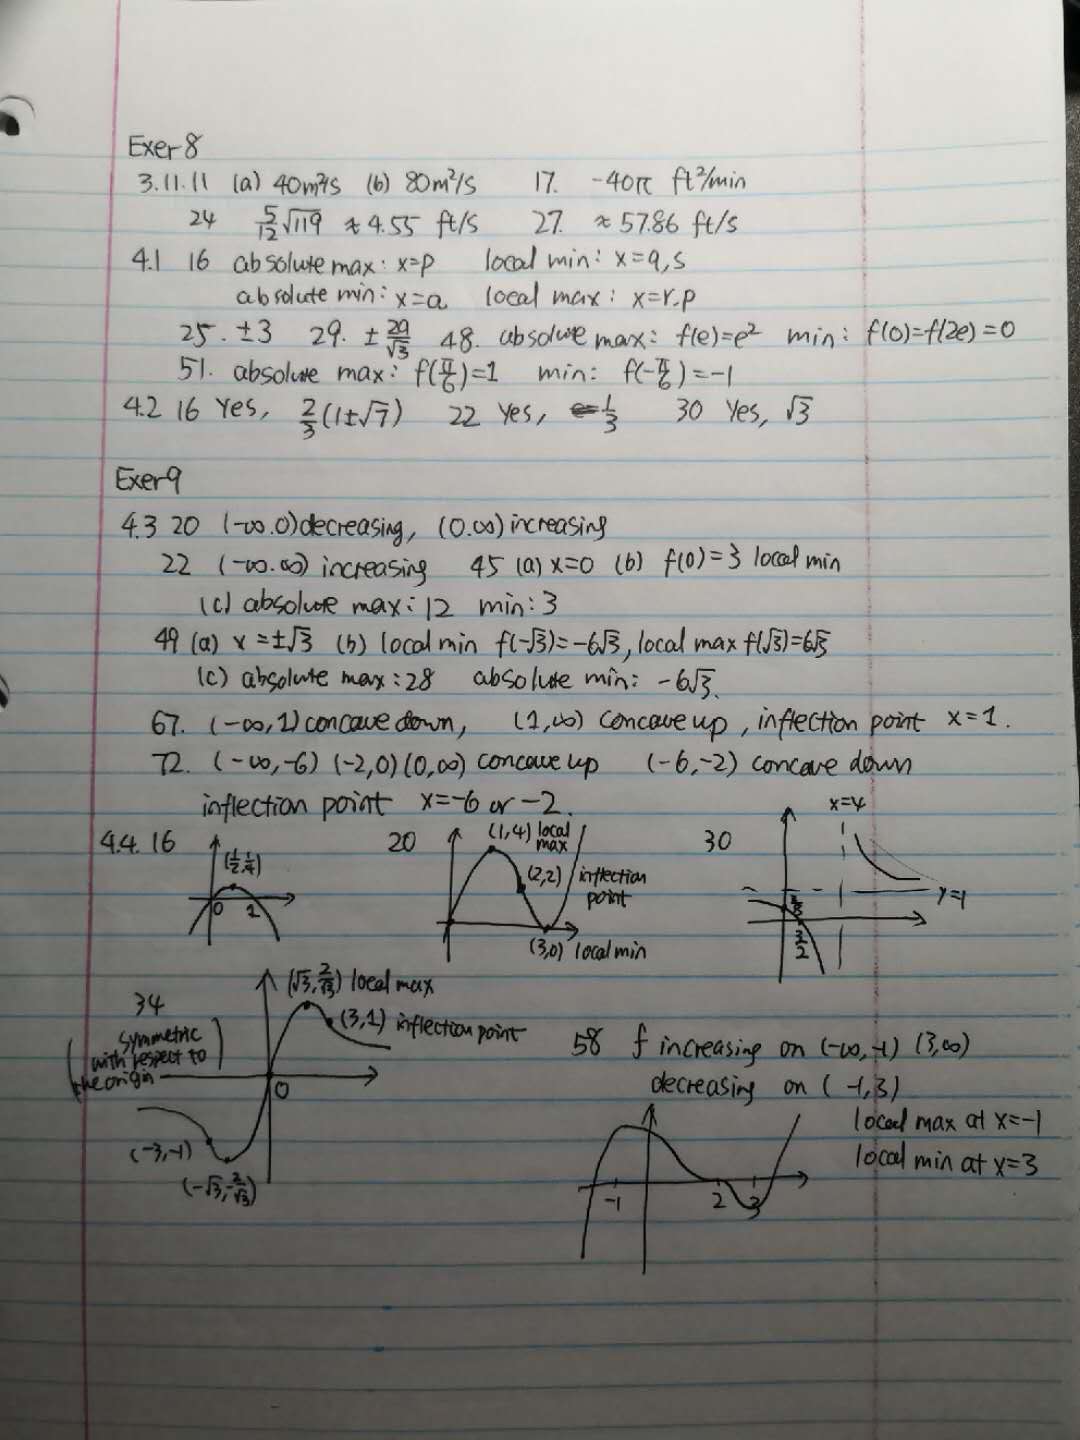 Exer 8
3.11.11 (a) 40m²/s (b) 80m²/s 17. -40π ft²/min
24 5/12 √119 ≈ 4.55 ft/s 27. ≈ 57.86 ft/s
4.1 16 absolute max: x=p local min: x=q,s
absolute min: x=a local max: x=r.p
25. ±3 29. ± 2a/√3 48. absolute max: f(e)=e² min: f(0)=f(2e)=0
51. absolute max: f(π/6)=1 min: f(-π/6)=-1
4.2 16 Yes, 2/3(1±√7) 22 Yes, 1/3 30 Yes, √3
Exer 9
4.3 20 (-∞.0) decreasing, (0.∞) increasing
22 (-∞.∞) increasing 45 (a) x=0 (b) f(0)=3 local min
(c) absolute max: 12 min: 3
49 (a) x=±√3 (b) local min f(-√3)=-6√3, local max f(√3)=6√3
(c) absolute max: 28 absolute min: -6√3.
67. (-∞,1) concave down, (1,∞) concave up, inflection point x=1.
72. (-∞,-6) (-2,0) (0,∞) concave up (-6,-2) concave down
inflection point x=-6 or -2.
4.4. 16
(1/2,1/4)
0 1
20
(1,4) local max
(2,2) inflection point
(3,0) local min
30
x=4
y=1
3/2
34
(symmetric with respect to the origin)
(√3, 2/√3) local max
(3,1) inflection point
0
(-3,-1)
(-√3, -2/√3)
58 f increasing on (-∞,-1) (3,∞)
decreasing on (-1,3)
local max at x=-1
local min at x=3
-1 2 3